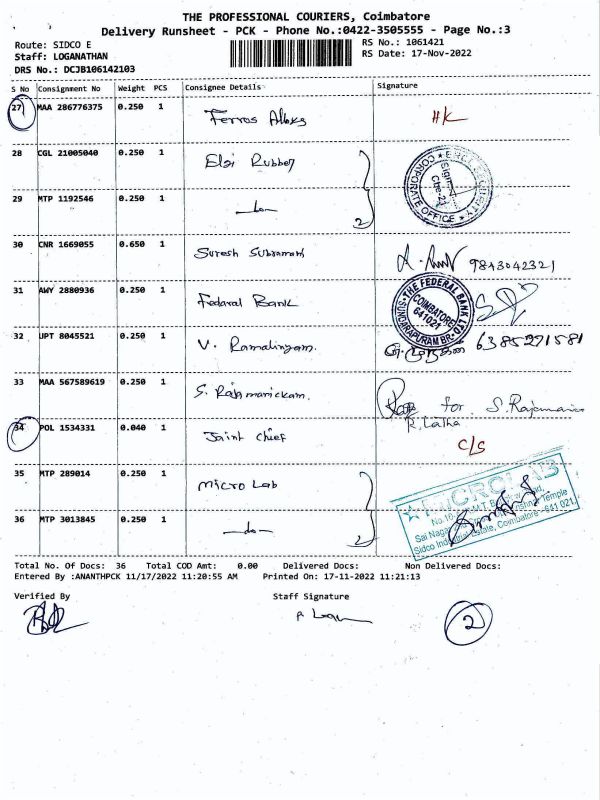 THE PROFESSIONAL COURIERS, Coimbatore
Delivery Runsheet - PCK - Phone No.:0422-3505555 - Page No.:3
Route: SIDCO E
RS No.: 1061421
Staff: LOGANATHAN
RS Date: 17-Nov-2022
DRS No.: DCJB106142103
S No Consignment No Weight PCS Consignee Details Signature
27 MAA 286776375 0.250 1 Ferros HK
28 CGL 21005040 0.250 1 Elgi Rubber CORPORATE OFFICE
29 MTP 1192546 0.250 1 —do— 2
30 CNR 1669055 0.650 1 Suresh Subramani 9843042321
31 AWY 2880936 0.250 1 Fedaral Bank THE FEDERAL BANK COIMBATORE 641021 SUNDARAPURAM BR.
32 UPT 8045521 0.250 1 V. Ramalingam. 6385271581
33 MAA 567589619 0.250 1 S. Rajamanickam. for S. Rajamanic
R. Latha
34 POL 1534331 0.040 1 Joint chief C/S
35 MTP 289014 0.250 1 Micro Lab MICROLABS
36 MTP 3013845 0.250 1 —do— 2 Sidco Industrial Estate, Coimbatore - 641 021.
Total No. Of Docs: 36 Total COD Amt: 0.00 Delivered Docs: Non Delivered Docs:
Entered By :ANANTHPCK 11/17/2022 11:20:55 AM Printed On: 17-11-2022 11:21:13
Verified By Staff Signature
2